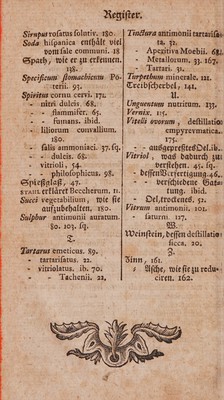 Register.
Sirupus rosatus solutiv. 180.
Soda hispanica enthält viel
vom sale communi. 18
Spath, wie er zu erkennen.
138.
Specificum stomachicum Po-
terii. 93.
Spiritus cornu cervi. 171.
- nitri dulcis. 68.
- - flammifer. 65.
- - fumans. ibid.
- liliorum convallium.
180.
- salis ammoniaci. 37. sq.
- - dulcis. 68.
- vitrioli, 54.
- - philosophicus. 98.
Spießglaß, 47.
STAUL erkläret Beccherum. 11.
Succi vegetabilium, wie sie
aufzubehalten, 180.
Sulphur antimonii auratum.
80. 103. sq.
T.
Tartarus emeticus. 89.
- tartarisatus. 22.
- vitriolatus. ib. 70.
- - Tachenii. 22.
Tinctura antimonii tartarisa-
ta. 32.
- Aperitiva Moebii. 68.
- Metallorum. 33. 167.
- Tartari. 31.
Turpethum minerale. 121.
Treibscherbel, 141.
U.
Unguentum nutritum. 133.
Vernix. 115.
Vitelli ovorum, destillatio
empyrevmatica.
175.
- ausgepreßtes Oel. ib.
Vitriol, was dadurch zu
verstehen. 45. sq.
- dessen Verfertigung. 46.
- verschiedene Gat-
tung. ibid.
- Oel, trocknes. 52.
Vitrum antimonii. 101.
- saturni. 117.
W.
Weinstein, dessen destillatio
sicca. 20.
Z.
Zinn, 161.
- Asche, wie sie zu redu-
ciren. 162.